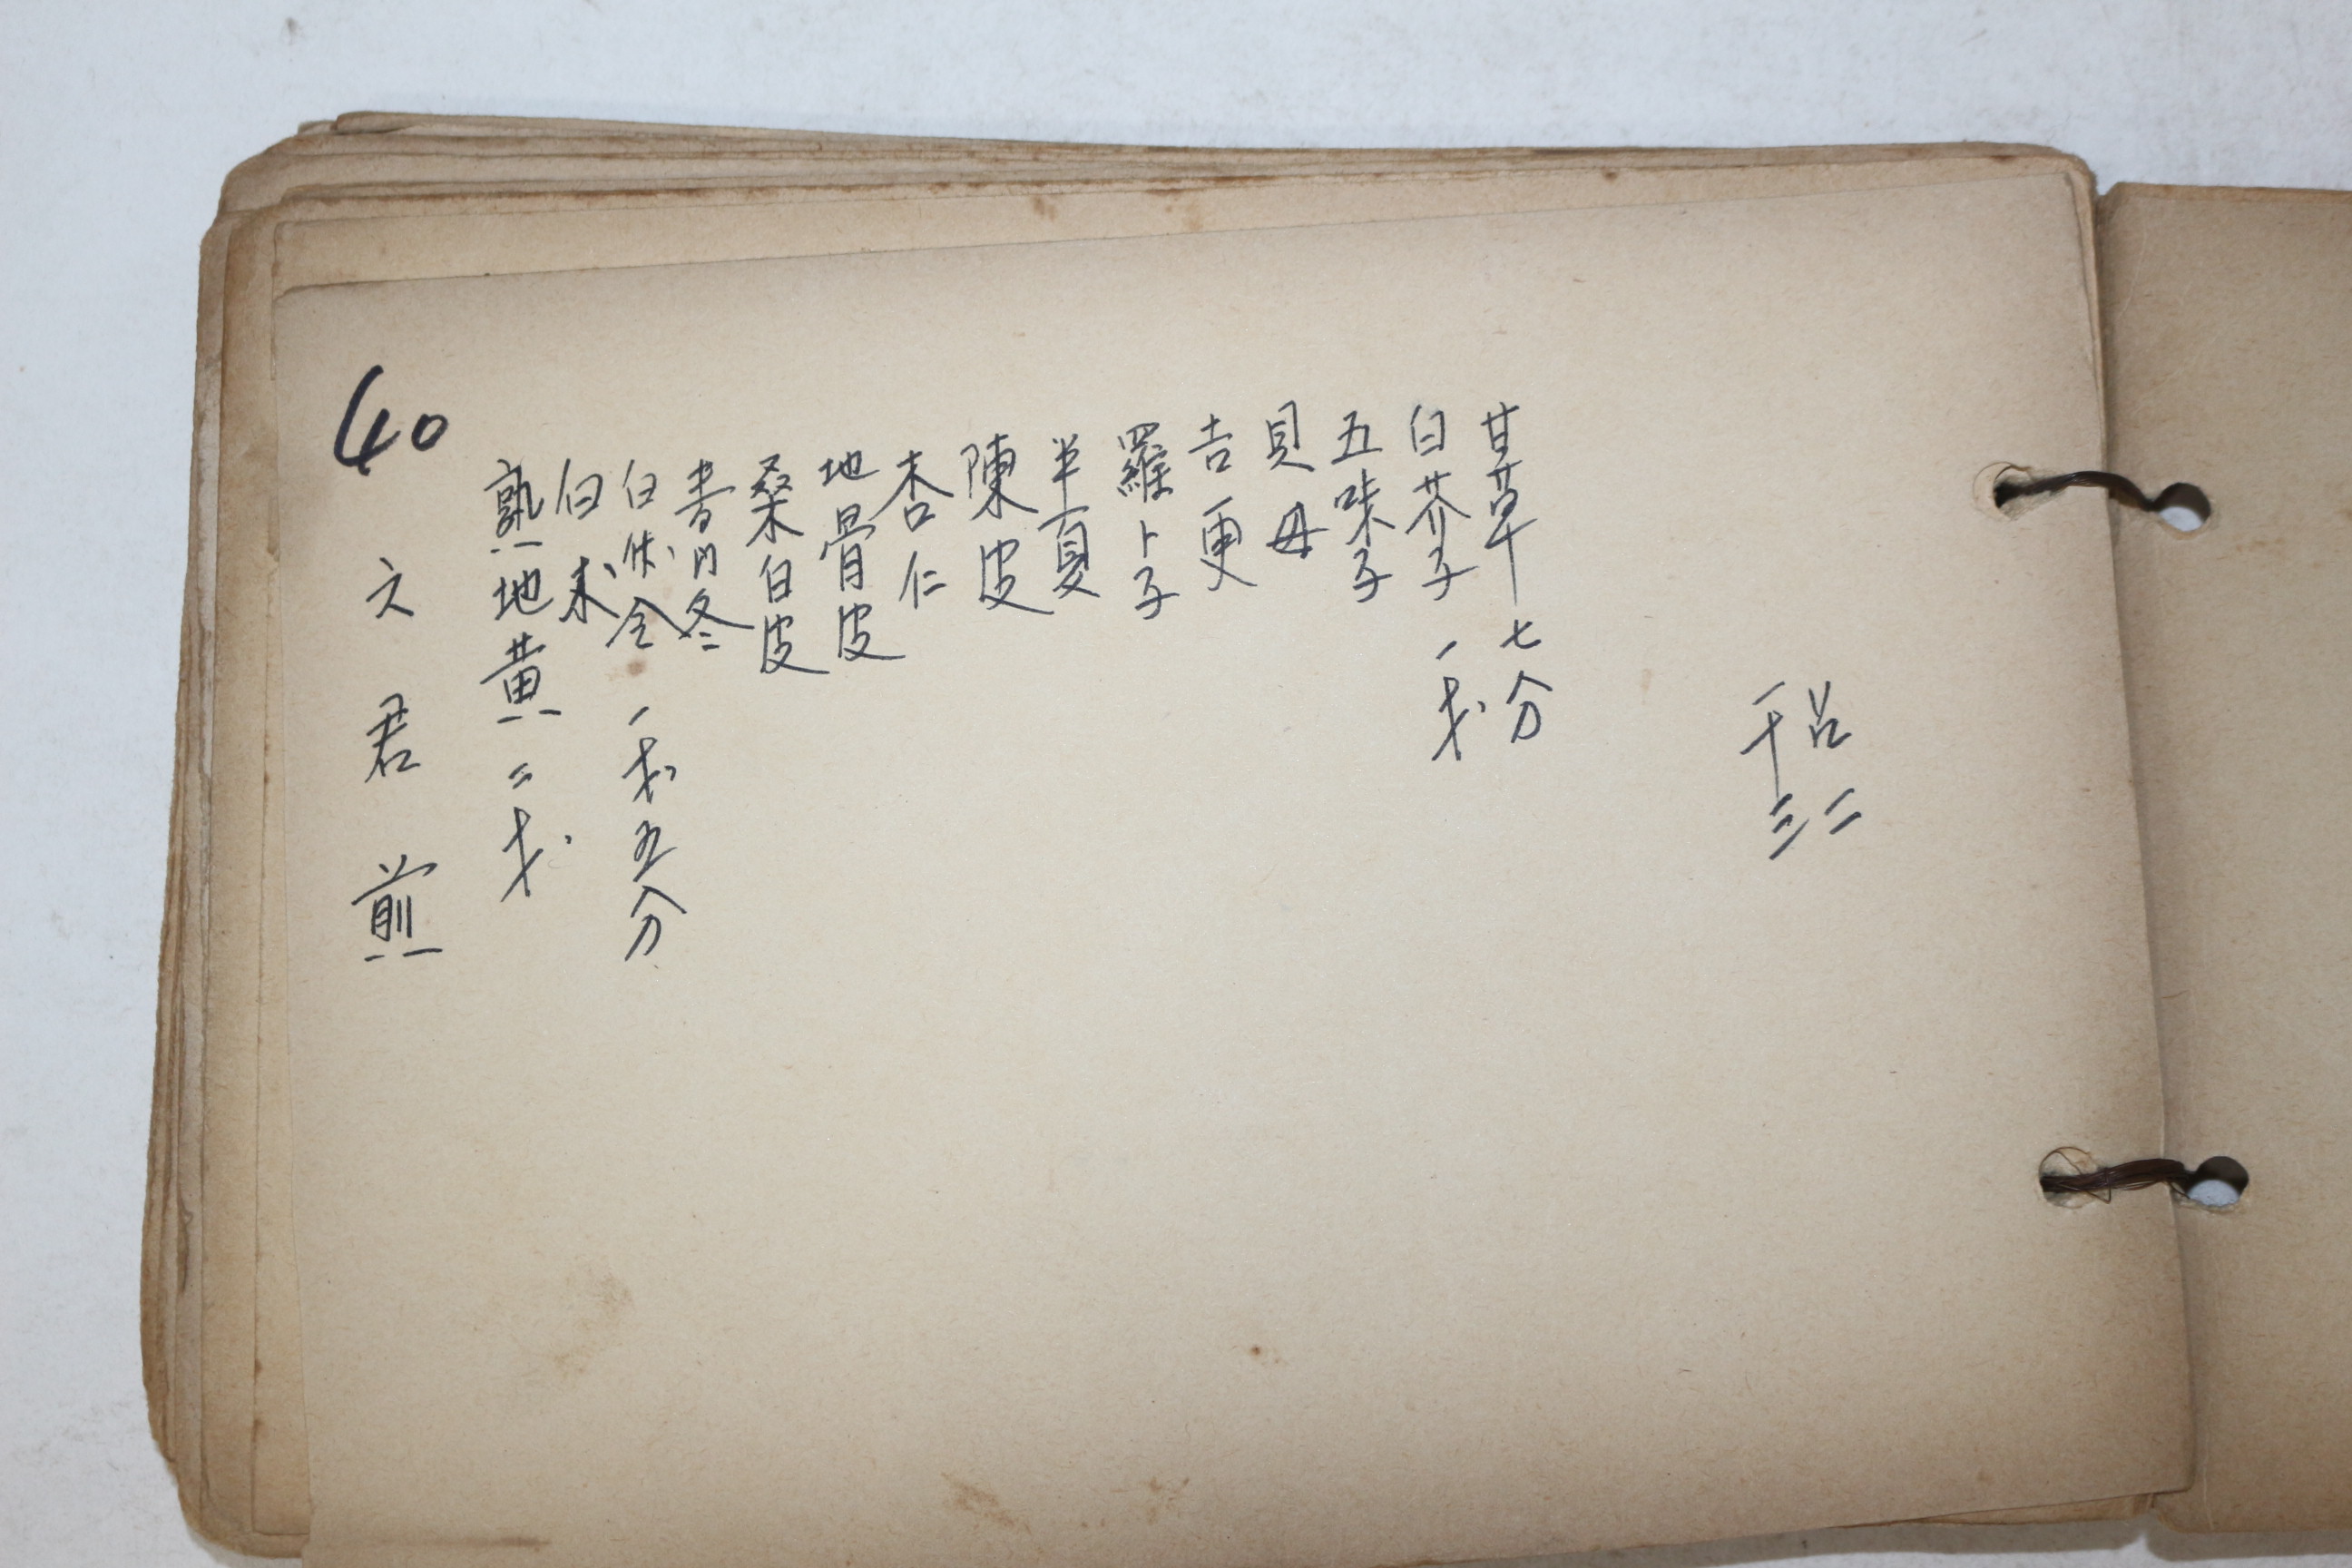 40
六君煎
熟地黄 二戋
白朮
白茯令 一戋五分
麦門冬
桑白皮
地骨皮
杏仁
陳皮
半夏
羅卜子
吉更
貝母
五味子
白芥子 一戋
甘草 七分
干三
召二